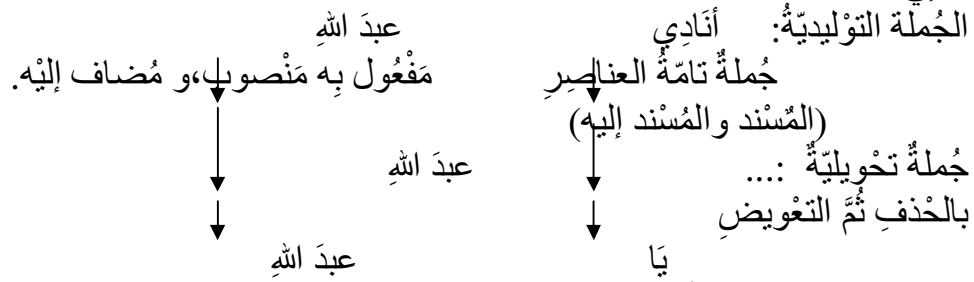 الجُملة التوْليديّةُ: أنَادِي عبدَ اللهِ
جُملةٌ تامّةُ العناصِرِ مَفْعُول بِه مَنْصوب،و مُضاف إليْه.
(المٌسْند والمُسْند إليه)
جُملةٌ تحْويليّةٌ :... عبدَ اللهِ
بالحْذفِ ثُمَّ التعْويضِ
يَا عبدَ اللهِ